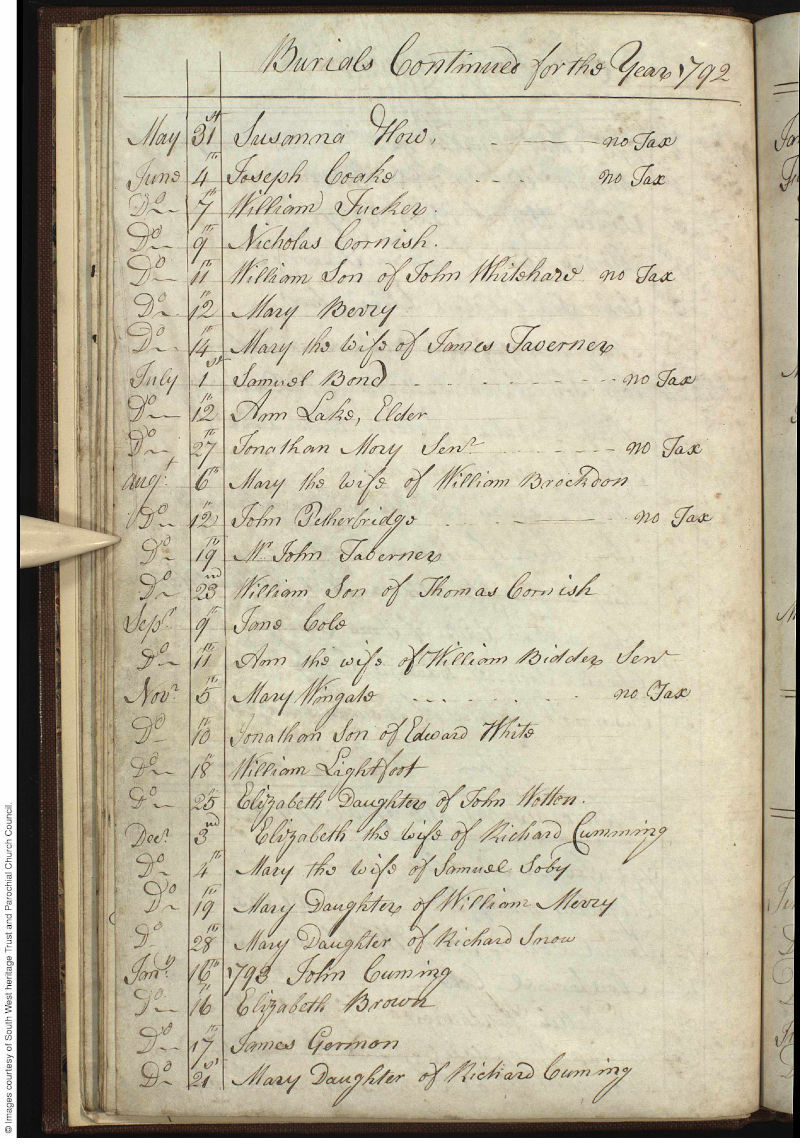 Burials Continued for the Year 1792
May 31st Susanna How, no Tax
June 4th Joseph Coake no Tax
Do 7th William Tucker.
Do 9th Nicholas Cornish.
Do 11th William Son of John Whitehare no Tax
Do 12th Mary Berry
Do 14th Mary the wife of James Taverner
July 1st Samuel Bond no Tax
Do 12th Ann Lake, Elder
Do 27th Jonathan Mory Senr no Tax
Augt: 6th Mary the wife of William Brockdon
Do 12th John Petherbridge no Tax
Do 19th Mr John Taverner
Do 23rd William Son of Thomas Cornish
Sepr 9th Jane Cole
Do 11th Ann the wife of William Bidder Senr
Novr 5th Mary Wingate no Tax
Do 10th Jonathan Son of Edward White
Do 18th William Lightfoot
Do 25th Elizabeth Daughter of John Wotton.
Decr 3rd Elizabeth the wife of Richard Cumming
Do 4th Mary the wife of Samuel Soby
Do 19th Mary Daughter of William Merry
Do 28th Mary Daughter of Richard Snow
Jany 16th 1793 John Cuming
Do 16th Elizabeth Brown
Do 17th James Germon
Do 21st Mary Daughter of Richard Cuming
© Images courtesy of South West heritage Trust and Parochial Church Council.